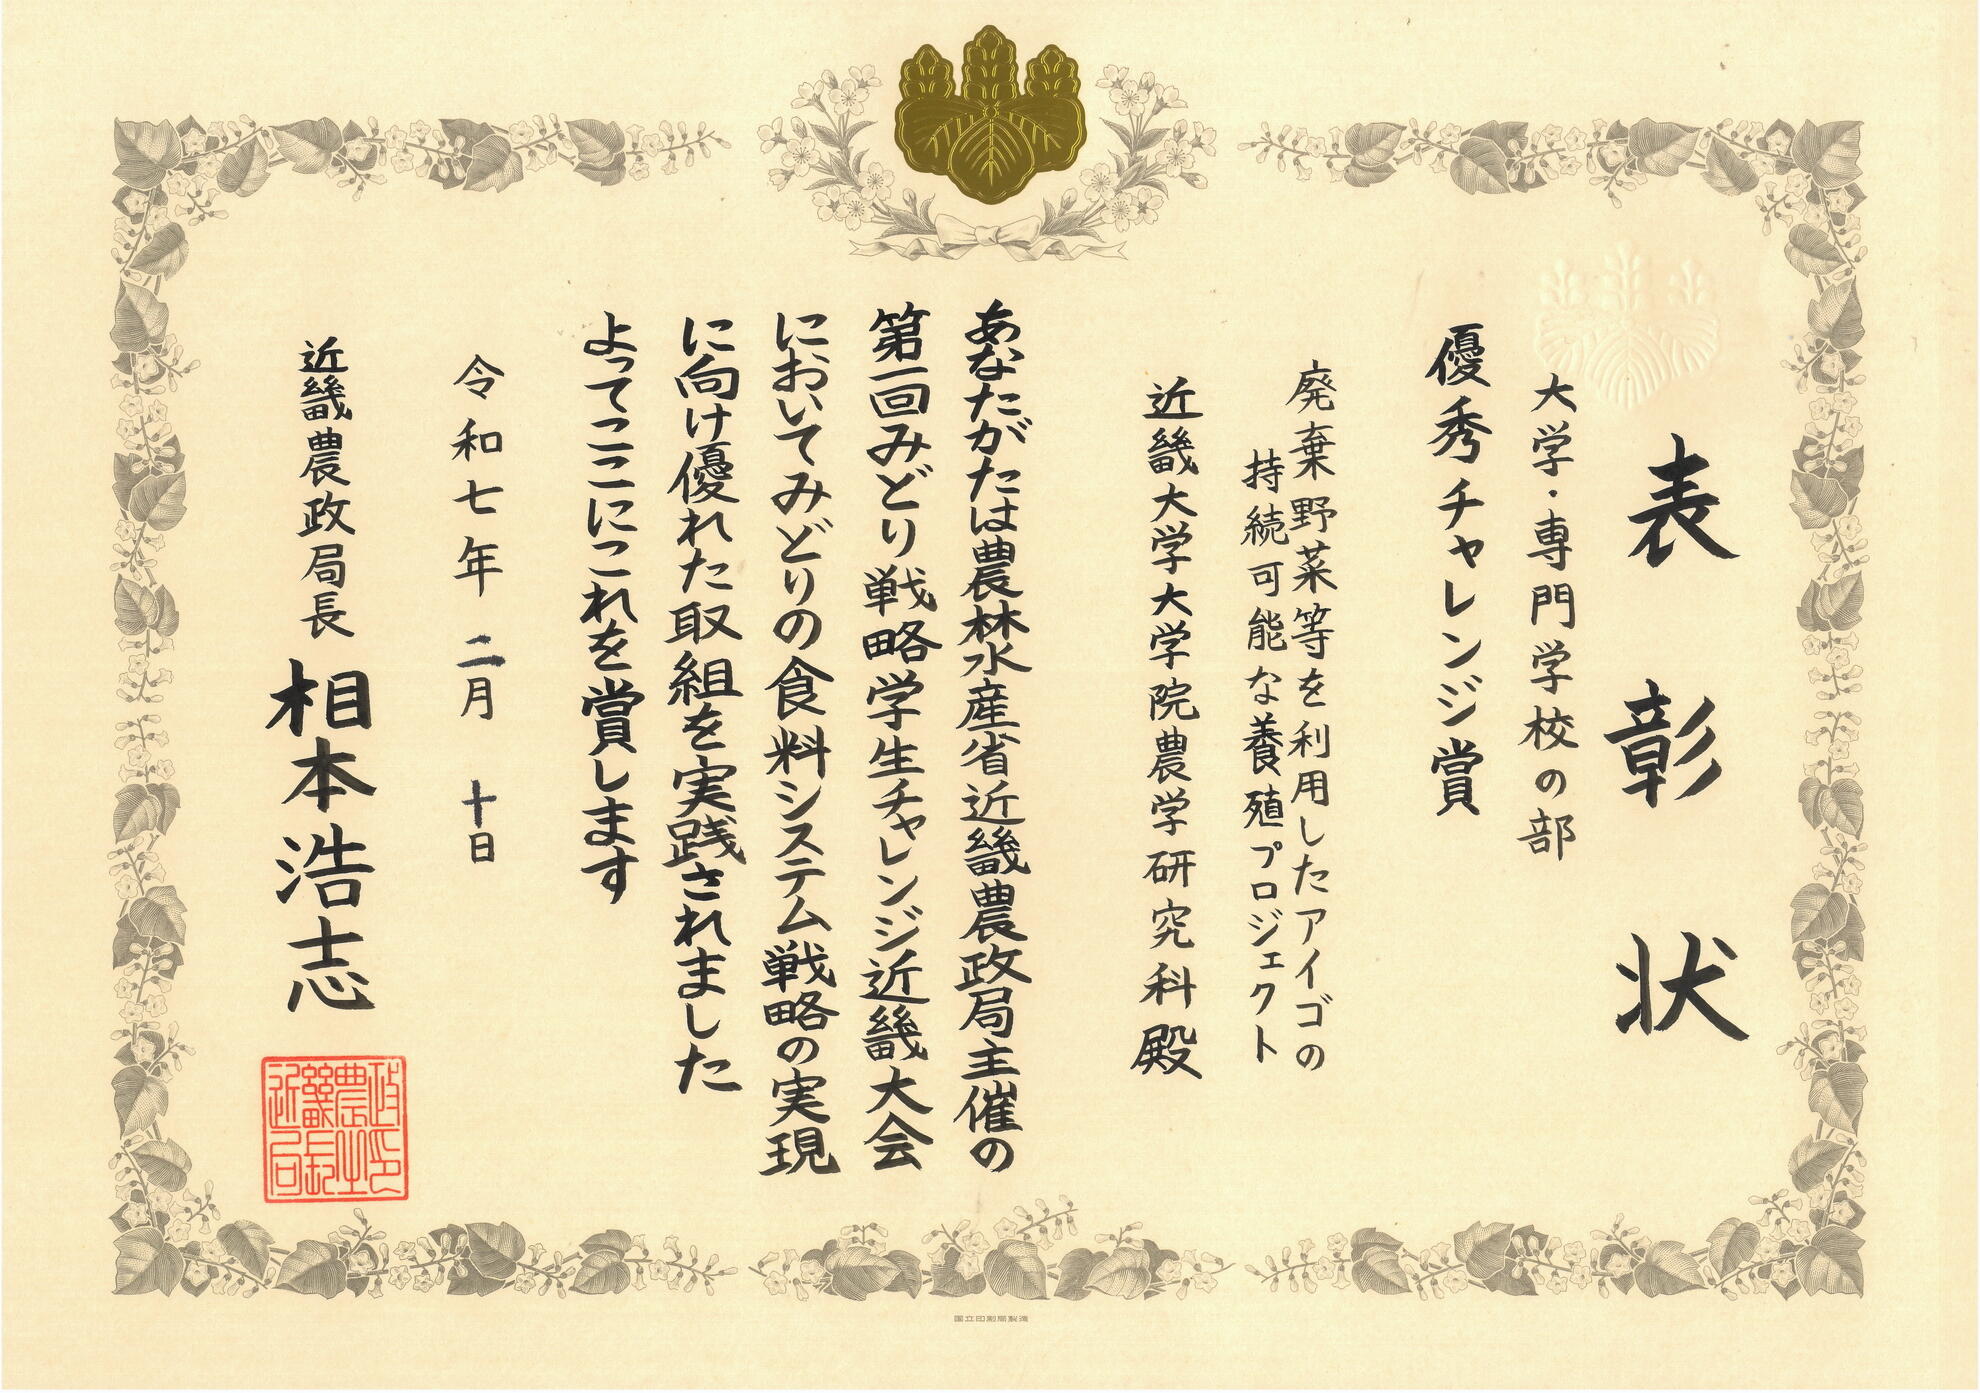 表彰状
大学・専門学校の部
優秀チャレンジ賞
廃棄野菜等を利用したアイゴの
持続可能な養殖プロジェクト
近畿大学大学院農学研究科殿
あなたがたは農林水産省近畿農政局主催の
第一回みどり戦略学生チャレンジ近畿大会
においてみどりの食料システム戦略の実現
に向け優れた取組を実践されました
よってここにこれを賞します
令和七年二月十日
近畿農政局長 相本浩志
近畿農政局長之印
国立印刷局製造